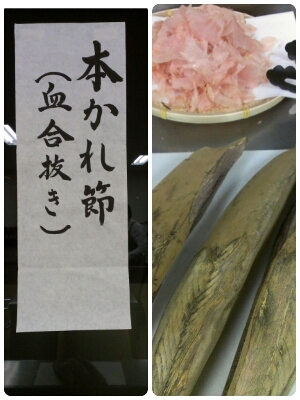 本かれ節
(血合抜き)